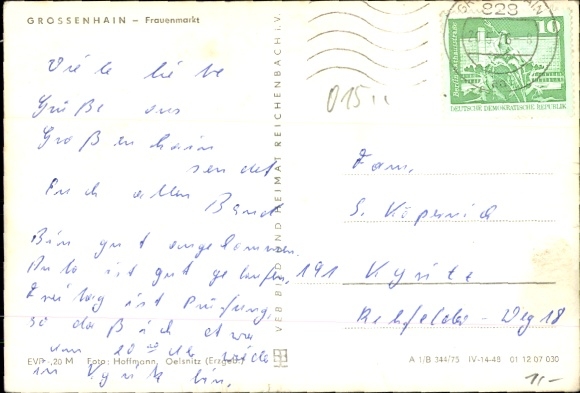 GROSSENHAIN – Frauenmarkt
Viele liebe
Grüße aus
Großenhain
sendet
Euch allen
Bernd
Bin gut angekommen.
Auto ist gut gelaufen,
Freitag ist Prüfung,
so daß ich etwa
um 20 00 Uhr wieder
in Kyritz bin.
EVP -,20 M Foto: Hoffmann, Oelsnitz (Erzgeb.)
VEB BILD UND HEIMAT REICHENBACH I. V.
828
10
Berlin, Rathausstraße
DEUTSCHE DEMOKRATISCHE REPUBLIK
015
Fam.
S. Köpernick
191 Kyritz
Rehfelder-Weg 18
A 1/B 344/75 IV-14-48 01 12 07 030
1,-